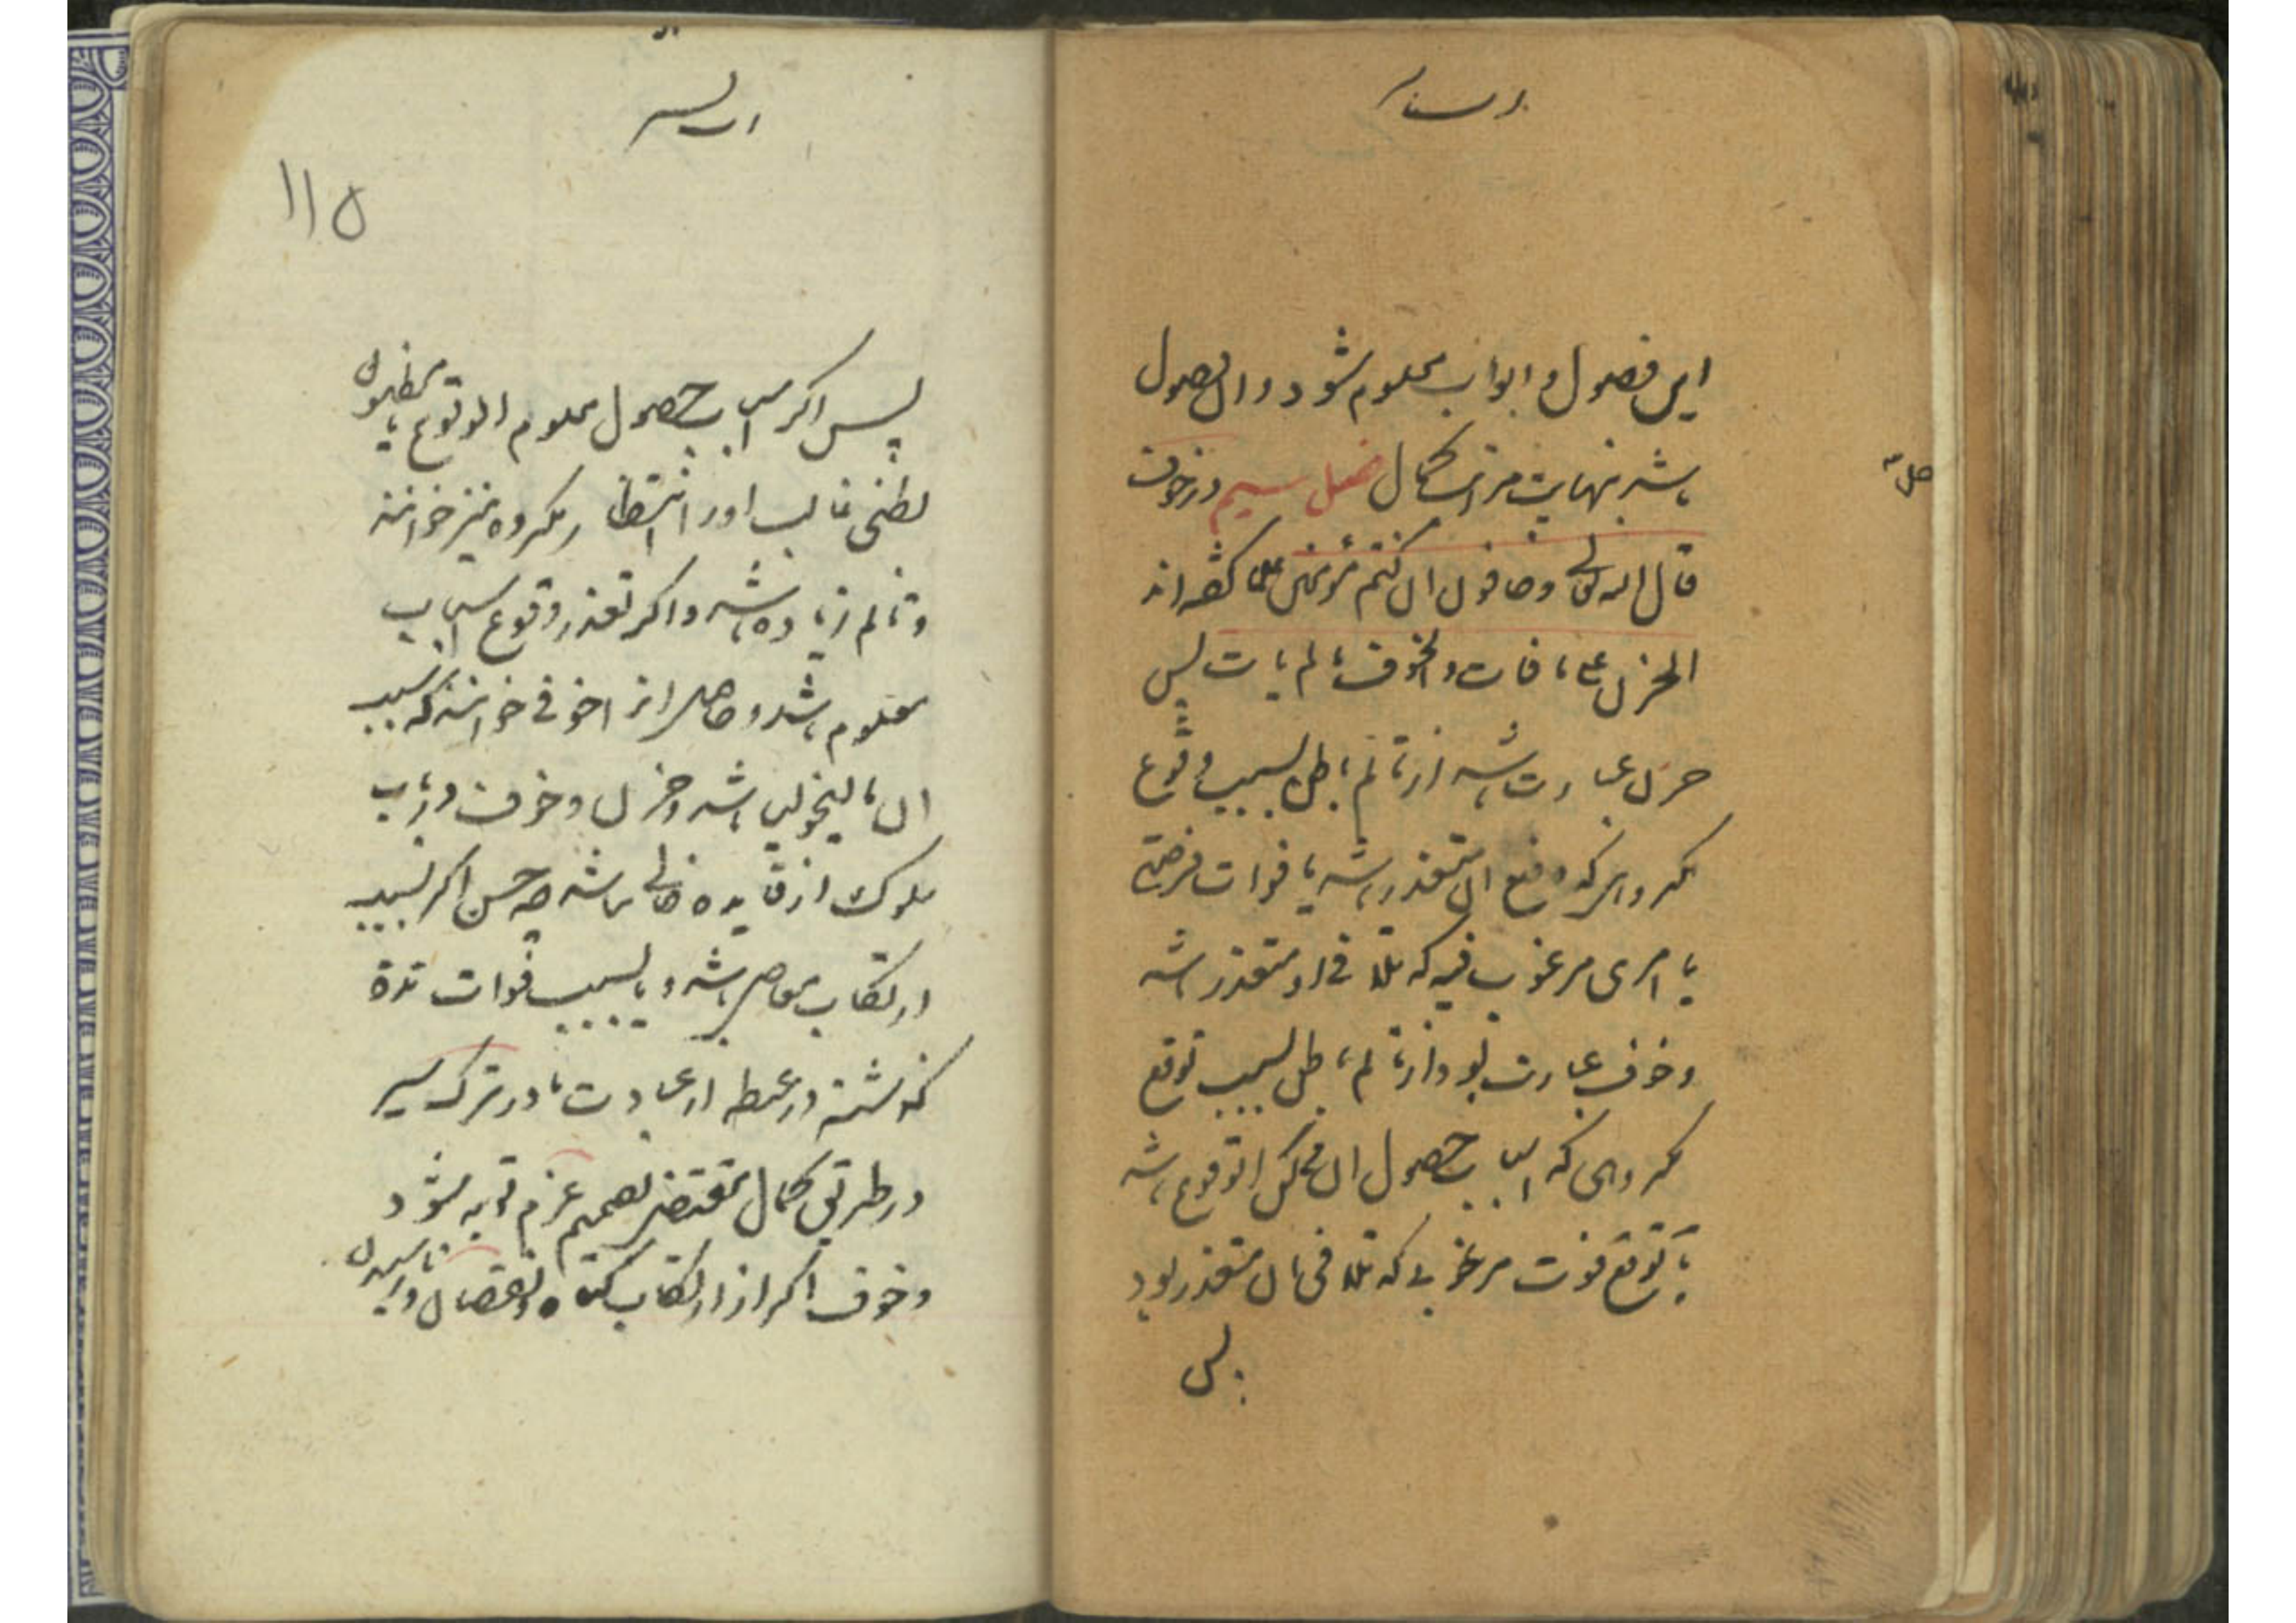 این فصول و ابواب معلوم شود و ان وصول
باشد بنهایت مراتب کمال فصل سیم در خوف
قال الله تعالی وخافون ان کنتم مؤمنین علما گفته‌اند
الحزن علی مافات والخوف مما لم یات پس
حزن عبارت باشد از تالم باطن بسبب وقوع
مکروهی که دفع ان متعذر باشد یا فوات فرصتی
یا امری مرغوب فیه که تلافی او متعذر باشد
و خوف عبارت بود از تالم باطن بسبب توقع
مکروهی که اسباب حصول ان ممکن الوقوع باشد
یا توقع فوت مرغوبی که تلافی ان متعذر بود
پس
۱۱۵
پس اگر اسباب حصول معلوم الوقوع یا مظنون
بظنی غالب او را انتظار مکروه نیز خوانند
و تالم زیاده باشد و اگر تعذر وقوع اسباب
معلوم باشد و حاصل از خوفی خوانند که سبب
ان مالیخولیا باشد و حزن و خوف در باب
سلوک از فایده خالی نباشد چه حزن اگر بسبب
ارتکاب معاصی باشد و یا بسبب فوات مدة
گذشته در عطله از عبادت یا در ترک سیر
در طریق کمال مقتضی تصمیم عزم توبه شود
و خوف اگر از ارتکاب گناه و نقصان و نارسیدن